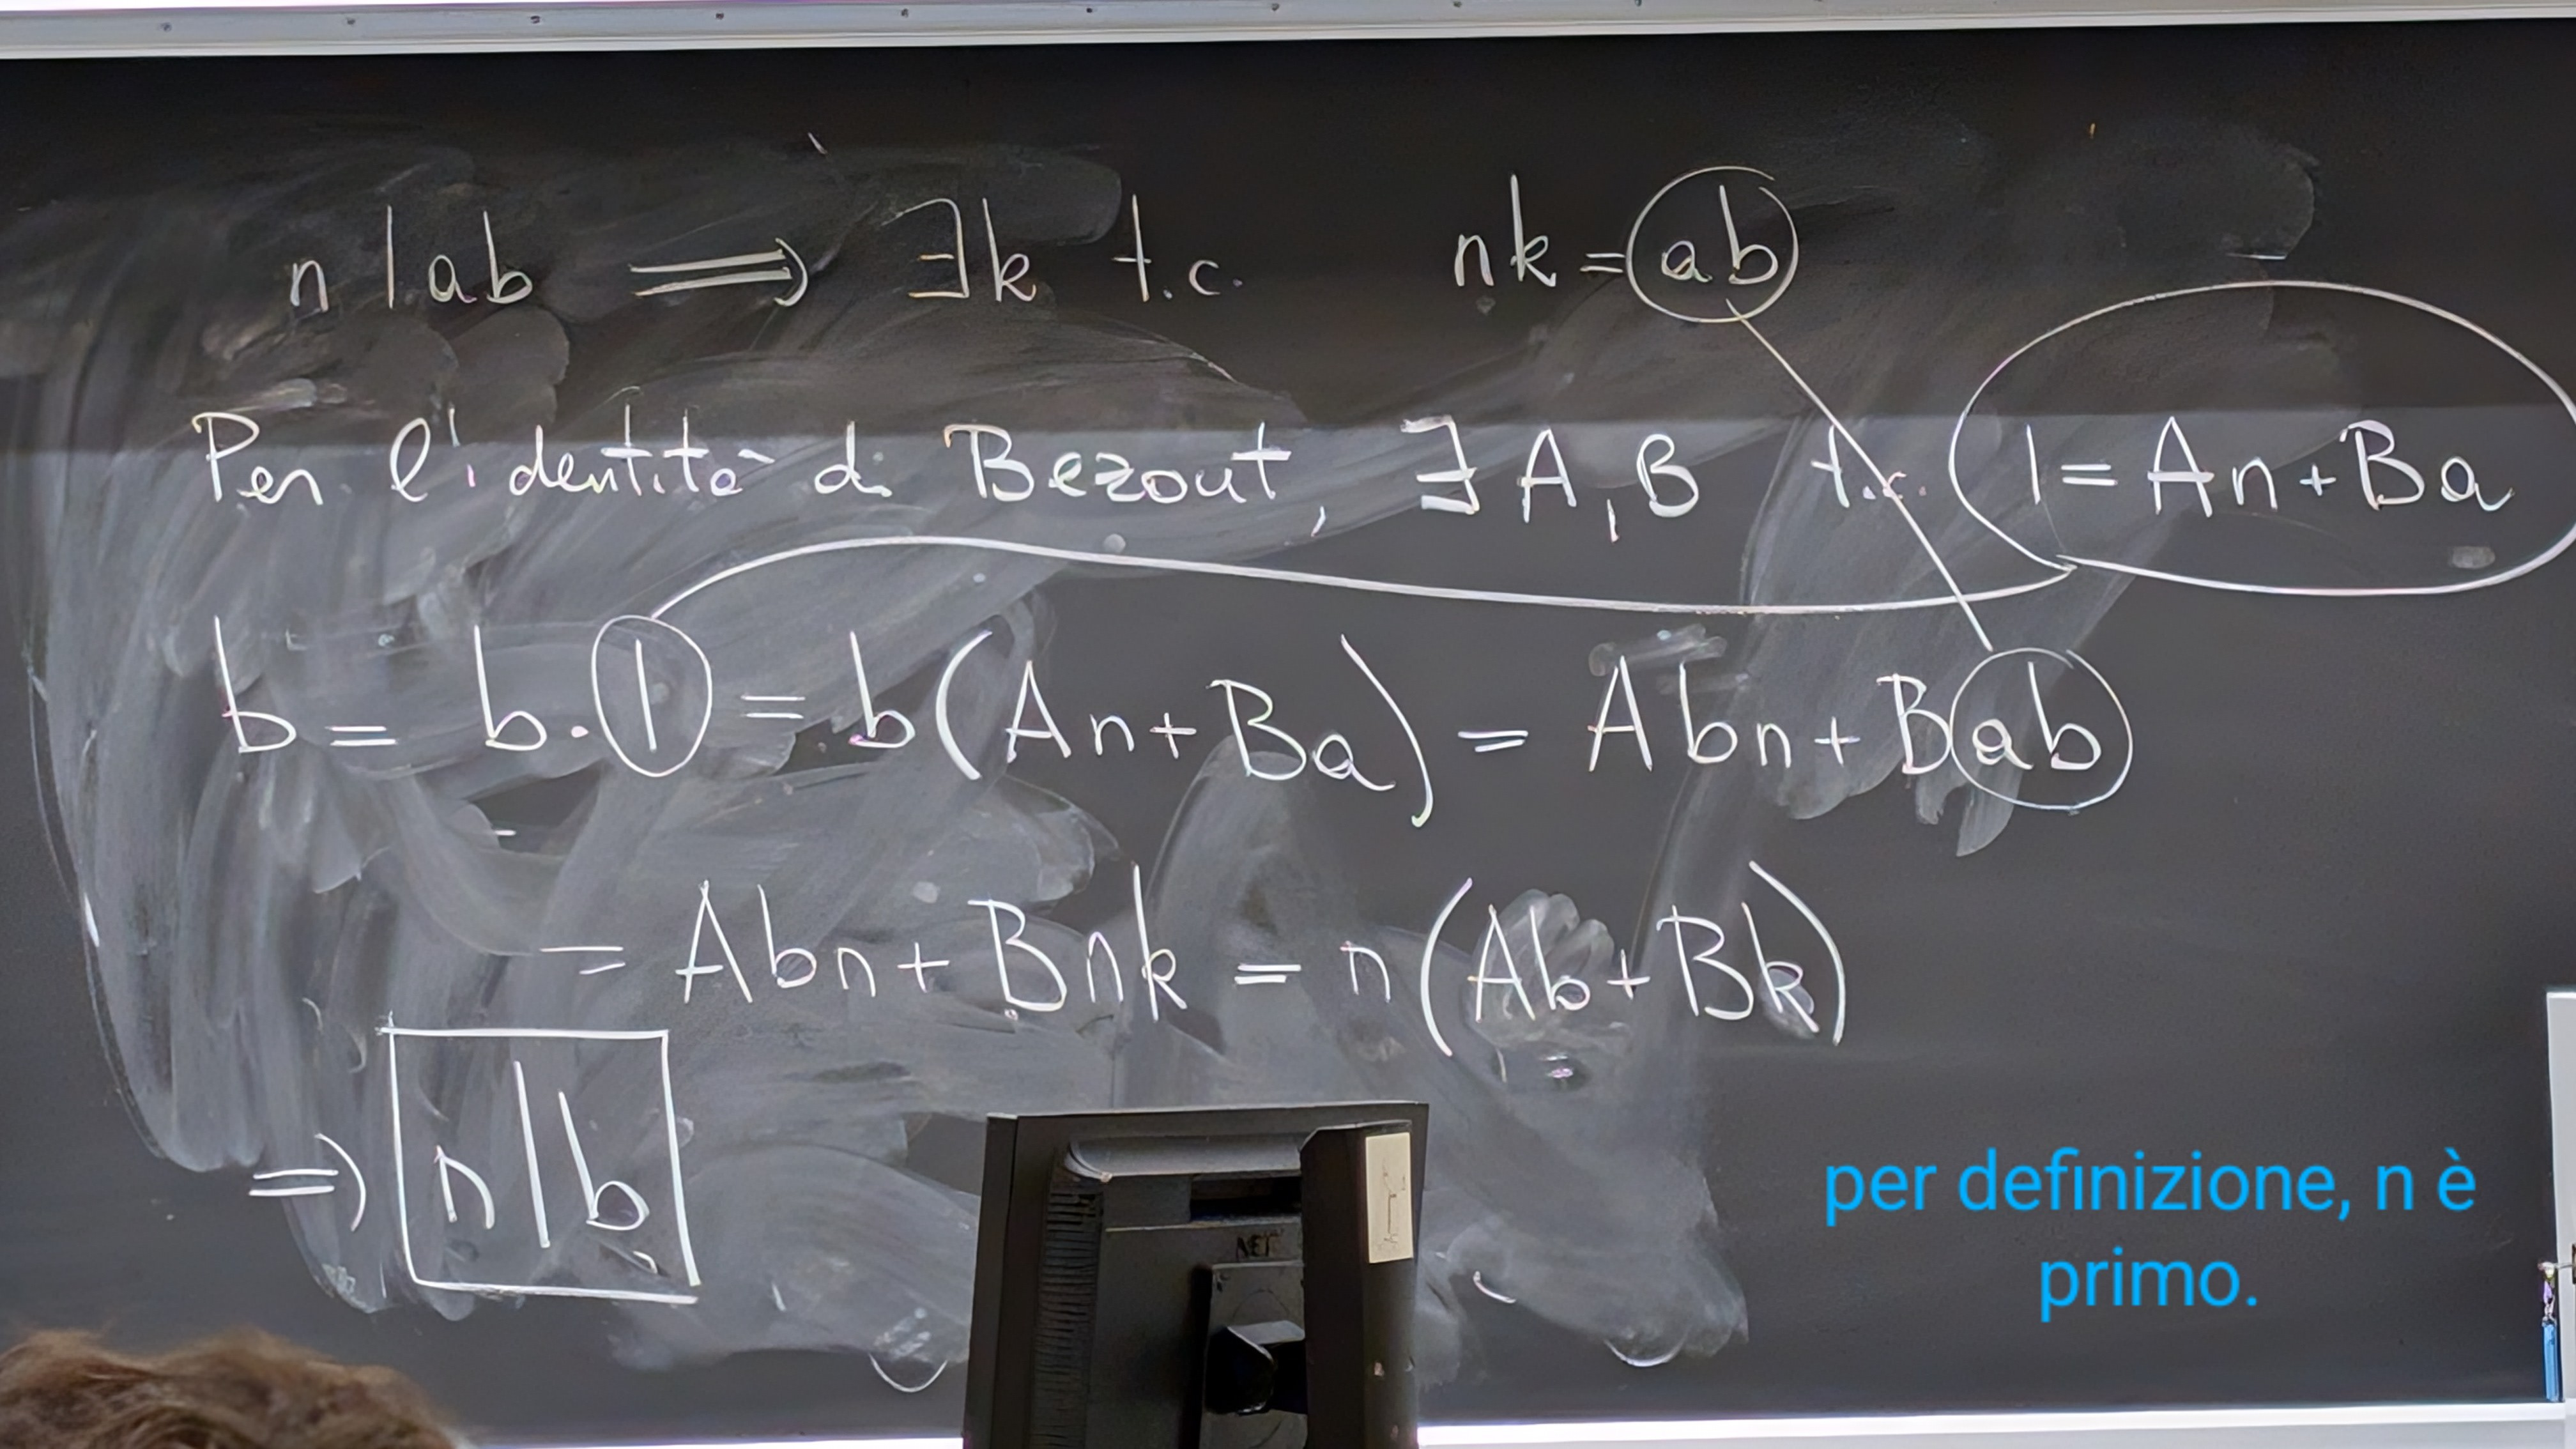 n | ab ⟹ ∃k t.c. nk = ab
Per l'identità di Bezout, ∃ A, B t.c. 1 = An + Ba
b = b · 1 = b(An + Ba) = Abn + Bab
= Abn + Bnk = n(Ab + Bk)
⟹ n | b
per definizione, n è
primo.